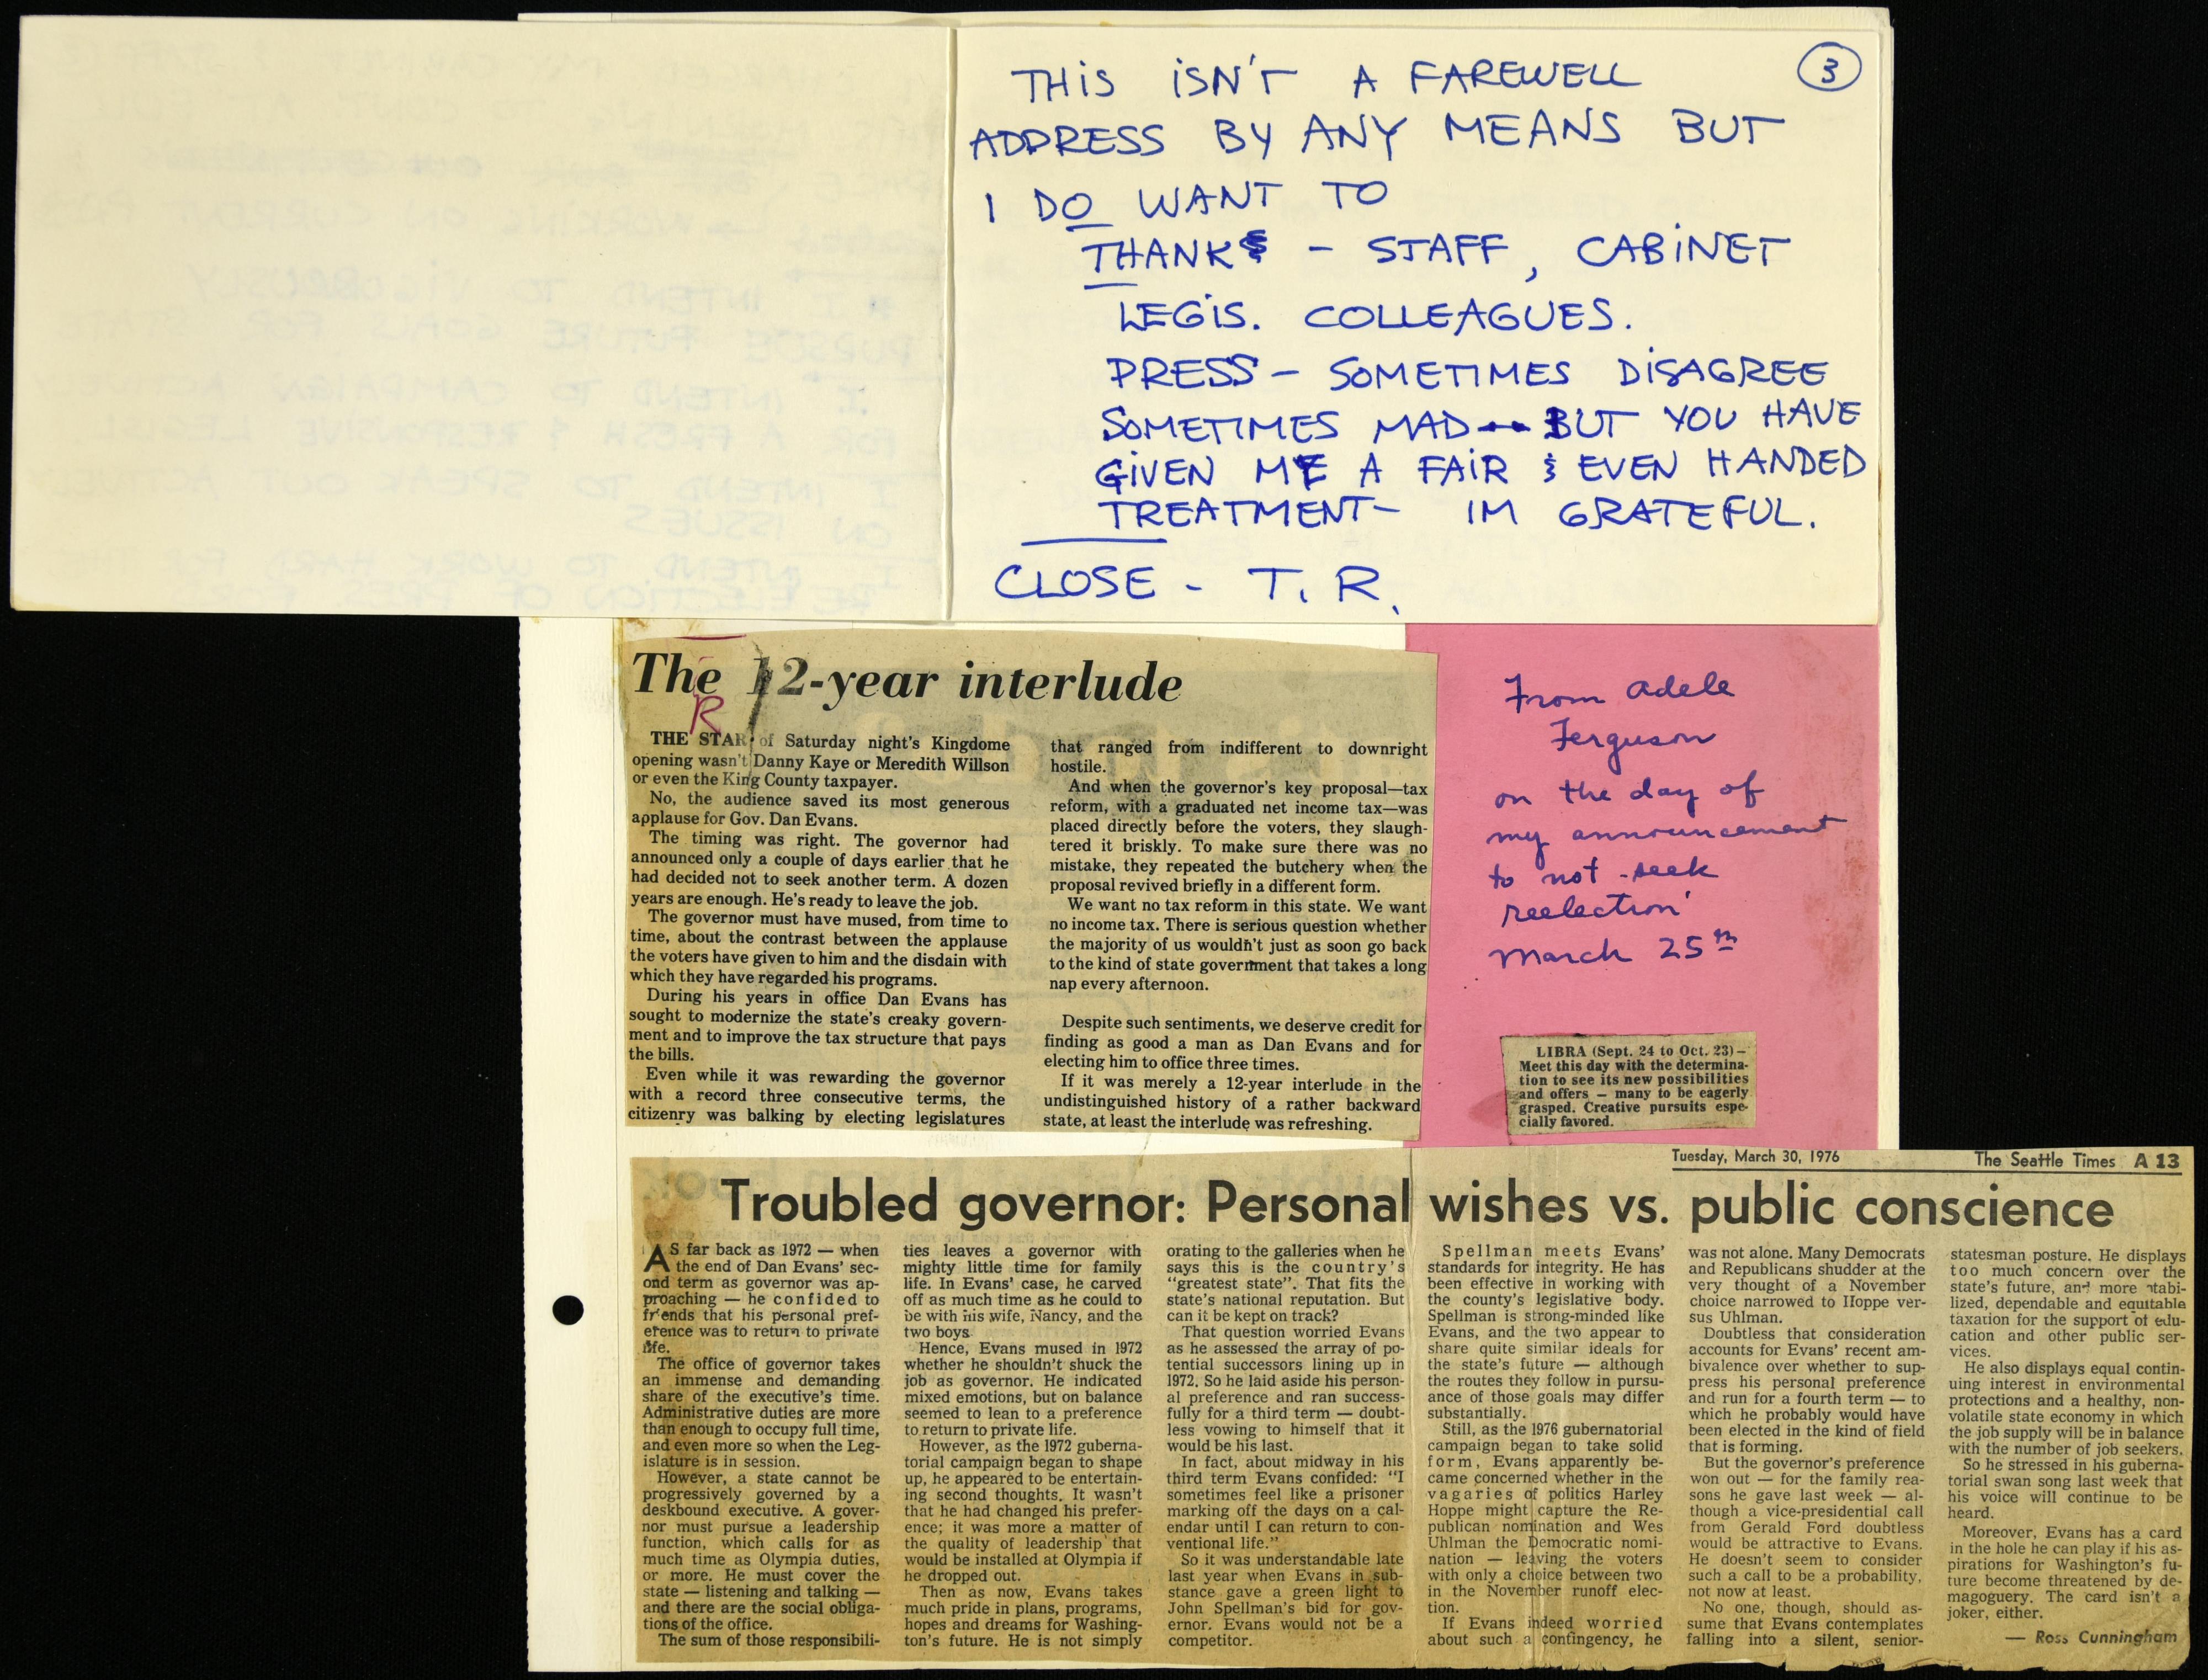 3
THiS iSN'T A FAREWELL
ADDRESS BY ANY MEANS BUT
I DO WANT TO
THANK - STAFF, CABiNET
LEGiS. COLLEAGUES.
PRESS - SOMETIMES DiSAGREE
SOMETIMES MAD BUT YOU HAVE
GiVEN ME A FAiR & EVEN HANDED
TREATMENT - IM GRATEFUL.
CLOSE - T. R.
The 12-year interlude
R
THE STAR of Saturday night's Kingdome
opening wasn't Danny Kaye or Meredith Willson
or even the King County taxpayer.
No, the audience saved its most generous
applause for Gov. Dan Evans.
The timing was right. The governor had
announced only a couple of days earlier that he
had decided not to seek another term. A dozen
years are enough. He's ready to leave the job.
The governor must have mused, from time to
time, about the contrast between the applause
the voters have given to him and the disdain with
which they have regarded his programs.
During his years in office Dan Evans has
sought to modernize the state's creaky govern-
ment and to improve the tax structure that pays
the bills.
Even while it was rewarding the governor
with a record three consecutive terms, the
citizenry was balking by electing legislatures
that ranged from indifferent to downright
hostile.
And when the governor's key proposal—tax
reform, with a graduated net income tax—was
placed directly before the voters, they slaugh-
tered it briskly. To make sure there was no
mistake, they repeated the butchery when the
proposal revived briefly in a different form.
We want no tax reform in this state. We want
no income tax. There is serious question whether
the majority of us wouldn't just as soon go back
to the kind of state government that takes a long
nap every afternoon.
Despite such sentiments, we deserve credit for
finding as good a man as Dan Evans and for
electing him to office three times.
If it was merely a 12-year interlude in the
undistinguished history of a rather backward
state, at least the interlude was refreshing.
From Adele
Ferguson
on the day of
my announcement
to not seek
reelection
March 25th
LIBRA (Sept. 24 to Oct. 23) —
Meet this day with the determina-
tion to see its new possibilities
and offers — many to be eagerly
grasped. Creative pursuits espe-
cially favored.
Tuesday, March 30, 1976 The Seattle Times A 13
Troubled governor: Personal wishes vs. public conscience
AS far back as 1972 — when
the end of Dan Evans' sec-
ond term as governor was ap-
proaching — he confided to
friends that his personal pref-
erence was to return to private
life.
The office of governor takes
an immense and demanding
share of the executive's time.
Administrative duties are more
than enough to occupy full time,
and even more so when the Leg-
islature is in session.
However, a state cannot be
progressively governed by a
deskbound executive. A gover-
nor must pursue a leadership
function, which calls for as
much time as Olympia duties,
or more. He must cover the
state — listening and talking —
and there are the social obliga-
tions of the office.
The sum of those responsibili-
ties leaves a governor with
mighty little time for family
life. In Evans' case, he carved
off as much time as he could to
be with his wife, Nancy, and the
two boys.
Hence, Evans mused in 1972
whether he shouldn't shuck the
job as governor. He indicated
mixed emotions, but on balance
seemed to lean to a preference
to return to private life.
However, as the 1972 guberna-
torial campaign began to shape
up, he appeared to be entertain-
ing second thoughts. It wasn't
that he had changed his prefer-
ence; it was more a matter of
the quality of leadership that
would be installed at Olympia if
he dropped out.
Then as now, Evans takes
much pride in plans, programs,
hopes and dreams for Washing-
ton's future. He is not simply
orating to the galleries when he
says this is the country's
"greatest state". That fits the
state's national reputation. But
can it be kept on track?
That question worried Evans
as he assessed the array of po-
tential successors lining up in
1972. So he laid aside his person-
al preference and ran success-
fully for a third term — doubt-
less vowing to himself that it
would be his last.
In fact, about midway in his
third term Evans confided: "I
sometimes feel like a prisoner
marking off the days on a cal-
endar until I can return to con-
ventional life."
So it was understandable late
last year when Evans in sub-
stance gave a green light to
John Spellman's bid for gov-
ernor. Evans would not be a
competitor.
Spellman meets Evans'
standards for integrity. He has
been effective in working with
the county's legislative body.
Spellman is strong-minded like
Evans, and the two appear to
share quite similar ideals for
the state's future — although
the routes they follow in pursu-
ance of those goals may differ
substantially.
Still, as the 1976 gubernatorial
campaign began to take solid
form, Evans apparently be-
came concerned whether in the
vagaries of politics Harley
Hoppe might capture the Re-
publican nomination and Wes
Uhlman the Democratic nomi-
nation — leaving the voters
with only a choice between two
in the November runoff elec-
tion.
If Evans indeed worried
about such a contingency, he
was not alone. Many Democrats
and Republicans shudder at the
very thought of a November
choice narrowed to Hoppe ver-
sus Uhlman.
Doubtless that consideration
accounts for Evans' recent am-
bivalence over whether to sup-
press his personal preference
and run for a fourth term — to
which he probably would have
been elected in the kind of field
that is forming.
But the governor's preference
won out — for the family rea-
sons he gave last week — al-
though a vice-presidential call
from Gerald Ford doubtless
would be attractive to Evans.
He doesn't seem to consider
such a call to be a probability,
not now at least.
No one, though, should as-
sume that Evans contemplates
falling into a silent, senior-
statesman posture. He displays
too much concern over the
state's future, and more stabi-
lized, dependable and equitable
taxation for the support of edu-
cation and other public ser-
vices.
He also displays equal contin-
uing interest in environmental
protections and a healthy, non-
volatile state economy in which
the job supply will be in balance
with the number of job seekers.
So he stressed in his guberna-
torial swan song last week that
his voice will continue to be
heard.
Moreover, Evans has a card
in the hole he can play if his as-
pirations for Washington's fu-
ture become threatened by de-
magoguery. The card isn't a
joker, either.
— Ross Cunningham